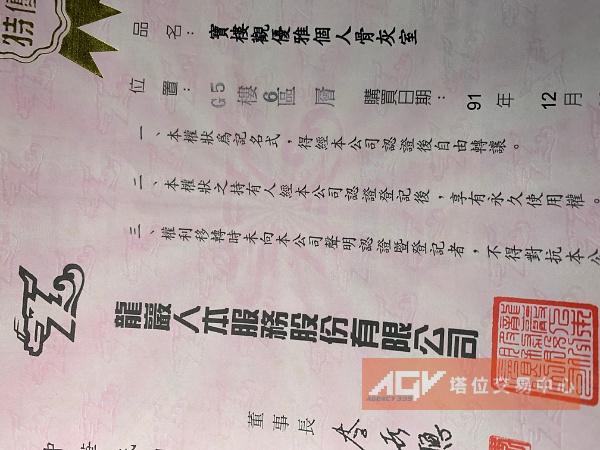 特優
品名：寶樓觀優雅個人骨灰室
位置：G5樓6區層 購買日期：91年12月
一、本權狀為記名式，得經本公司認證後自由轉讓。
二、本權狀之持有人經本公司認證登記後，享有永久使用權。
三、權利移轉時未向本公司聲明認證暨登記者，不得對抗本公
龍巖人本服務股份有限公司
AGV 塔位交易中心
AGENCY339
董事長 李